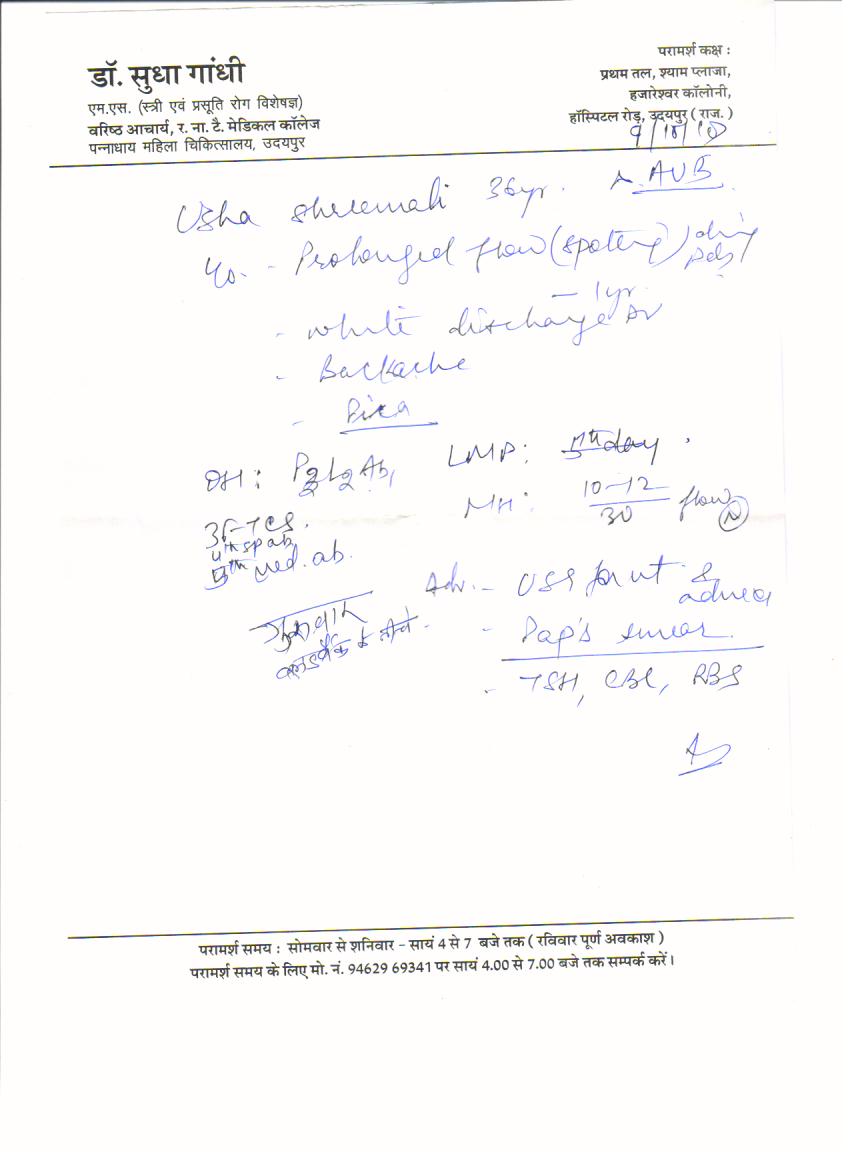 डॉ. सुधा गांधी
एम.एस. (स्त्री एवं प्रसूति रोग विशेषज्ञ)
वरिष्ठ आचार्य, र. ना. टै. मेडिकल कॉलेज
पन्नाधाय महिला चिकित्सालय, उदयपुर
परामर्श कक्ष :
प्रथम तल, श्याम प्लाजा,
हजारेश्वर कॉलोनी,
हॉस्पिटल रोड़, उदयपुर ( राज. )
9/10/10
Usha Shreemali 36yr. AUB
- Prolonged flow (spoting) during Pds
- 1yr.
- white discharge PV
- Backache
- Pica
OH: P2L2Ab1 LMP: 5th day
MH: 10-12/30 flow (N)
4th sp ab,
5th med. ab.
Adv. - USG for ut &
adnexa
- Pap's smear
- TSH, CBC, RBS
ब्लडबैंक के नीचे
परामर्श समय : सोमवार से शनिवार - सायं 4 से 7 बजे तक ( रविवार पूर्ण अवकाश )
परामर्श समय के लिए मो. नं. 94629 69341 पर सायं 4.00 से 7.00 बजे तक सम्पर्क करें।